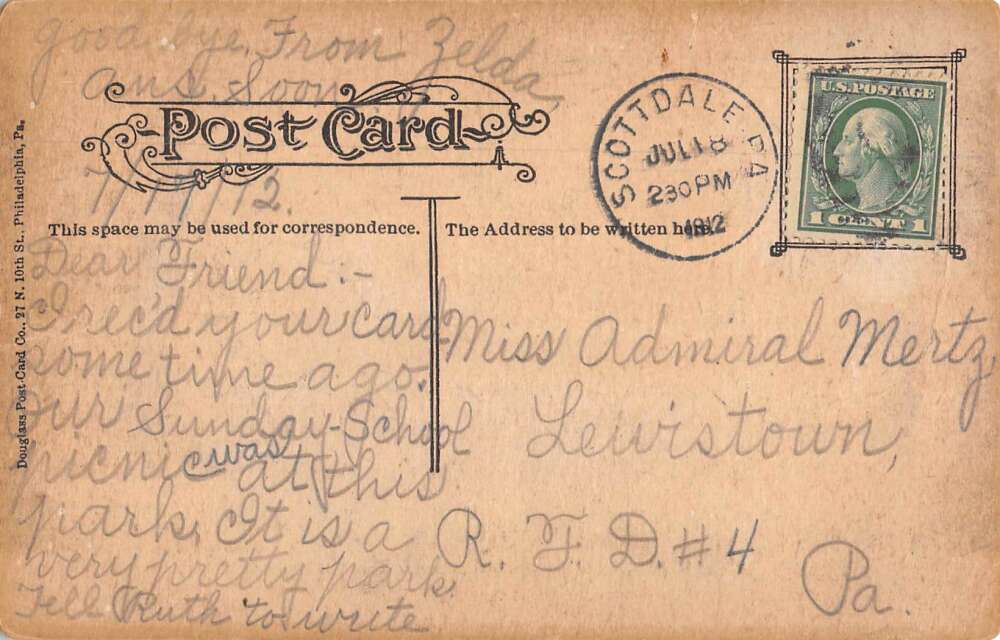 Good-bye, From Zelda,
Ans. Soon
Post Card
7/17/12.
This space may be used for correspondence.
Dear Friend :-
I rec'd your card
some time ago.
Our Sunday-School
picnic was at this
park. It is a
very pretty park.
Tell Ruth to write
The Address to be written here.
Miss Admiral Mertz,
Lewistown,
R. F. D. # 4
Pa.
SCOTTDALE, PA
JUL 18
2 30 PM
1912
U.S. POSTAGE
1 CENT 1
Douglass Post Card Co., 27 N. 10th St., Philadelphia, Pa.